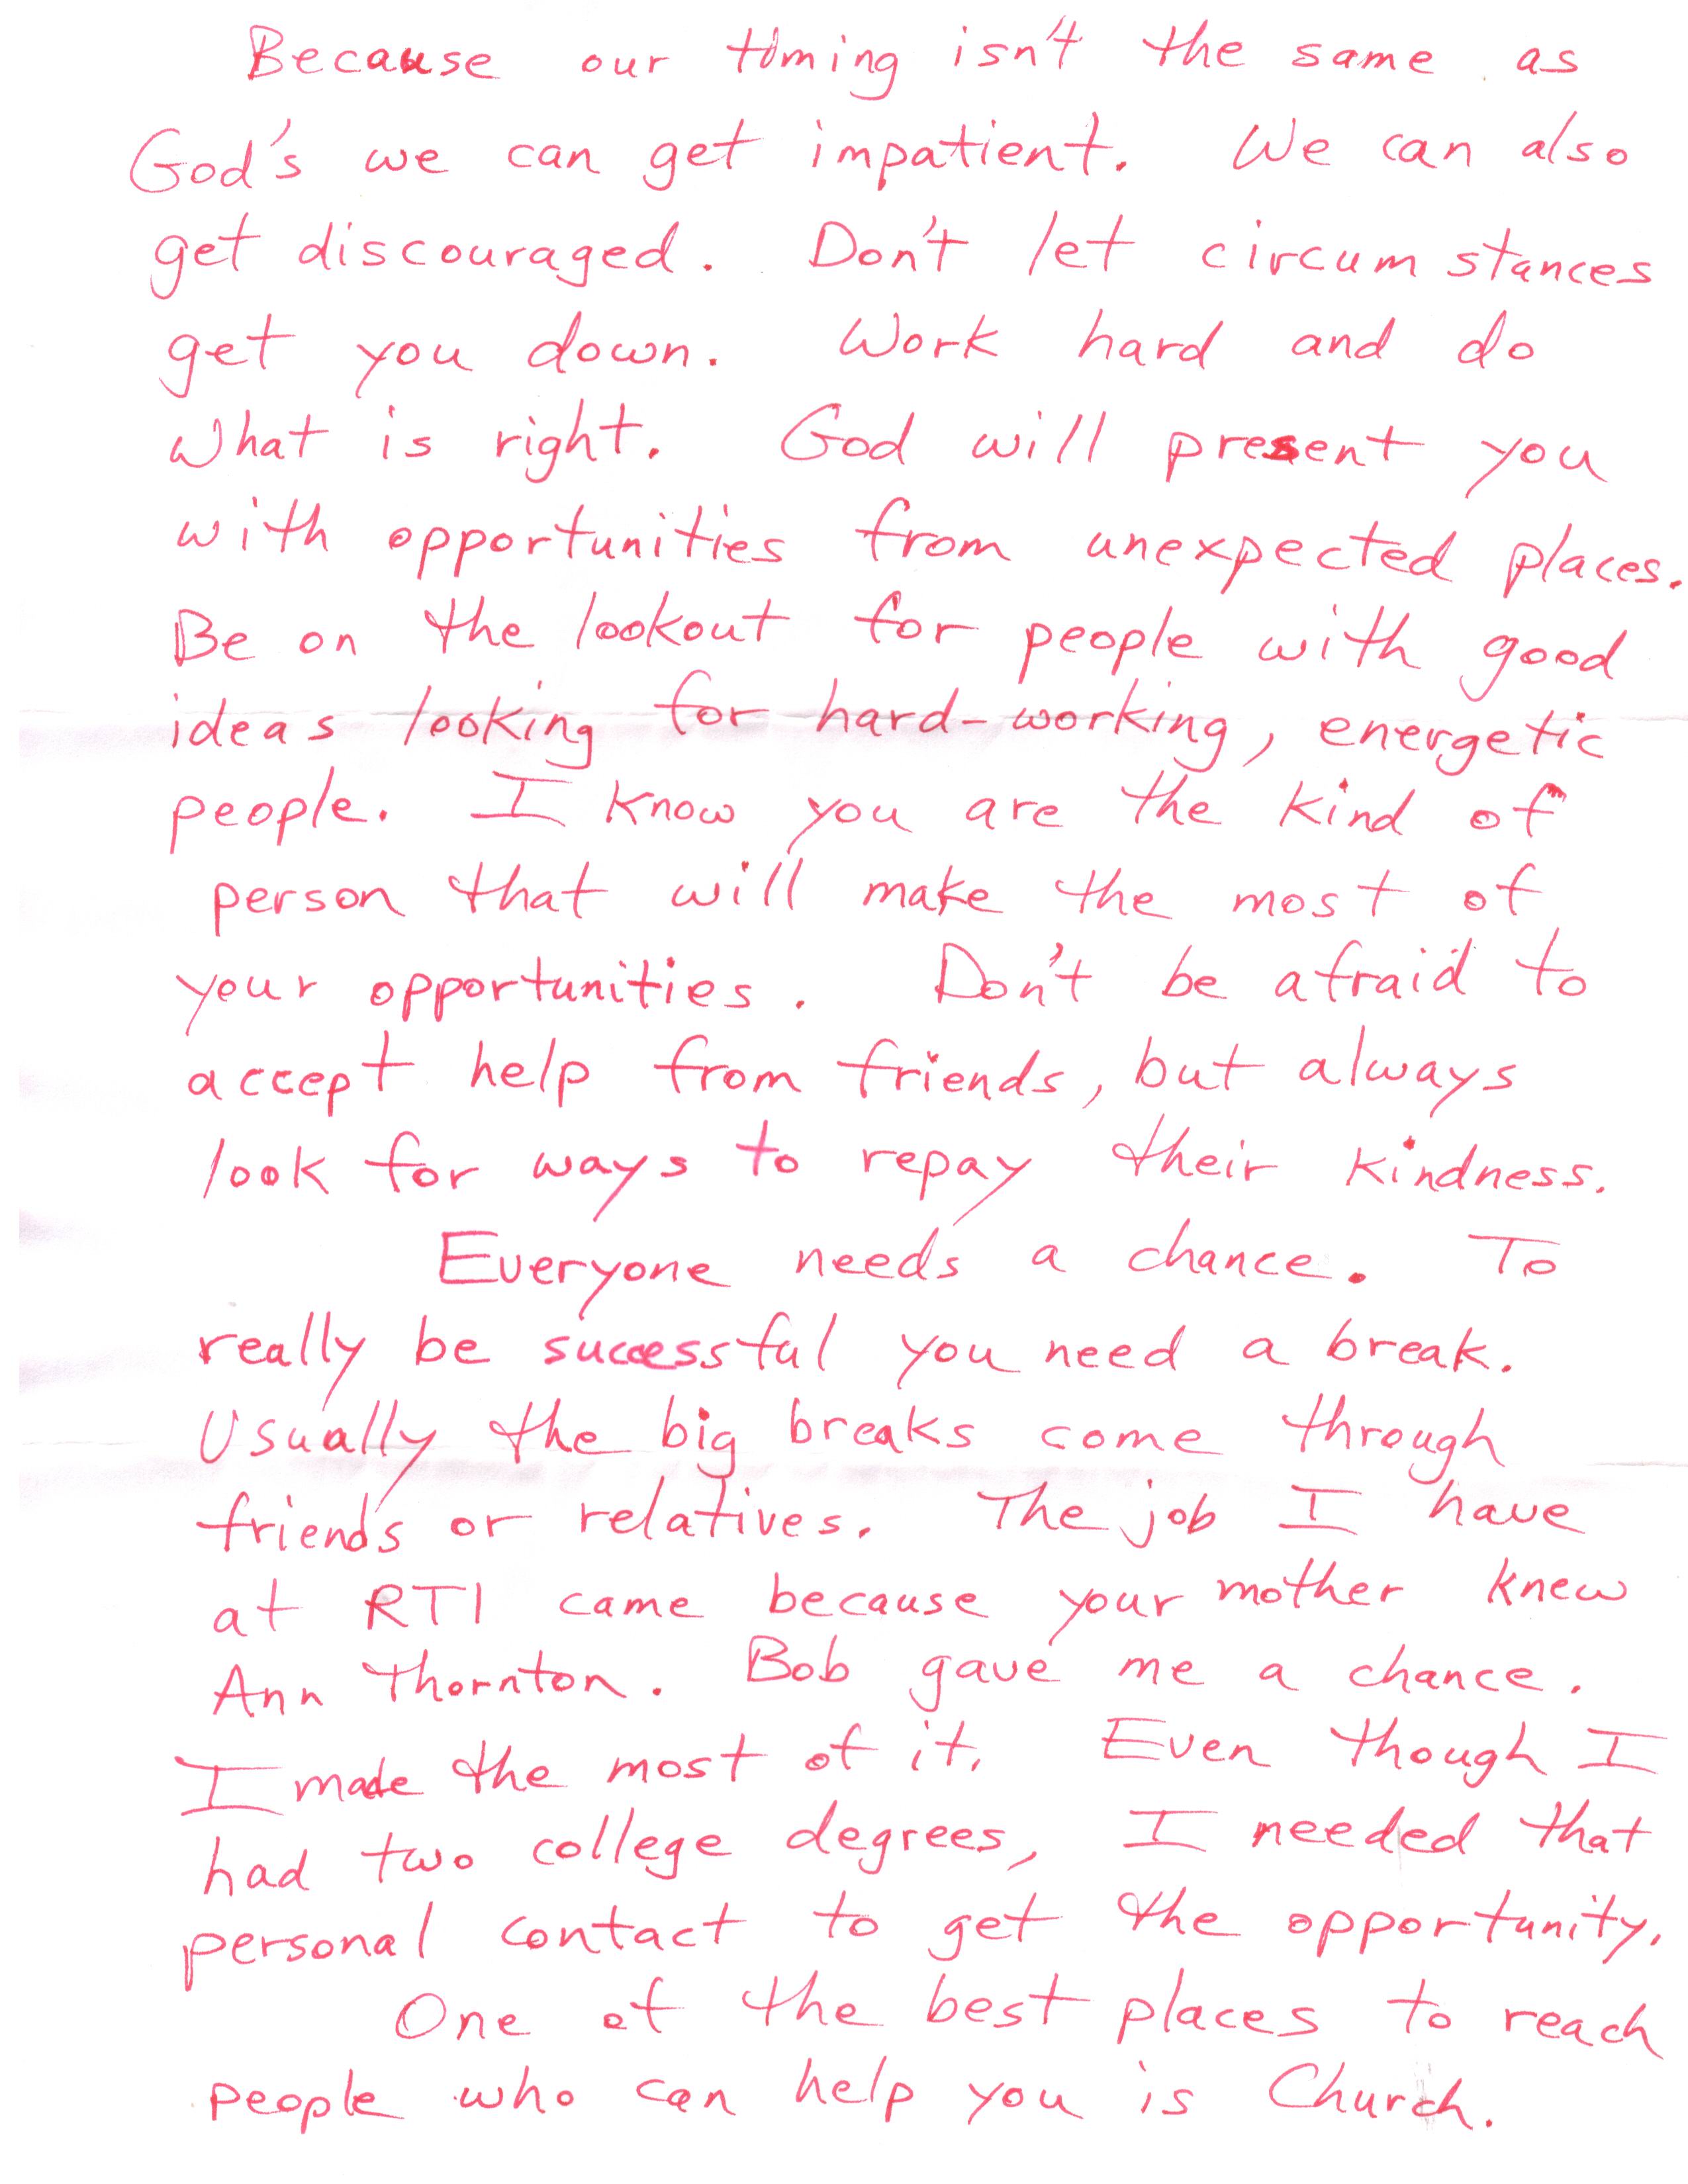 Because our timing isn't the same as
God's we can get impatient. We can also
get discouraged. Don't let circumstances
get you down. Work hard and do
what is right. God will present you
with opportunities from unexpected places.
Be on the lookout for people with good
ideas looking for hard-working, energetic
people. I know you are the kind of
person that will make the most of
your opportunities. Don't be afraid to
accept help from friends, but always
look for ways to repay their kindness.
Everyone needs a chance. To
really be successful you need a break.
Usually the big breaks come through
friends or relatives. The job I have
at RTI came because your mother knew
Ann Thornton. Bob gave me a chance.
I made the most of it. Even though I
had two college degrees, I needed that
personal contact to get the opportunity.
One of the best places to reach
people who can help you is Church.